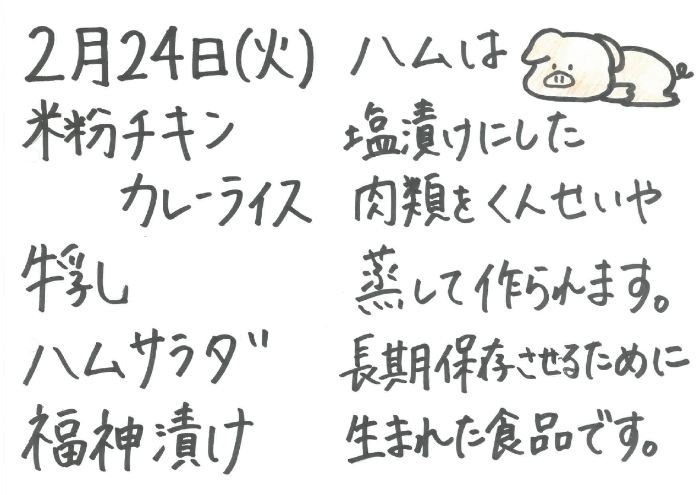 2月24日(火)
米粉チキン
カレーライス
牛乳
ハムサラダ
福神漬け
ハムは
塩漬けにした
肉類をくんせいや
蒸して作られます。
長期保存させるために
生まれた食品です。